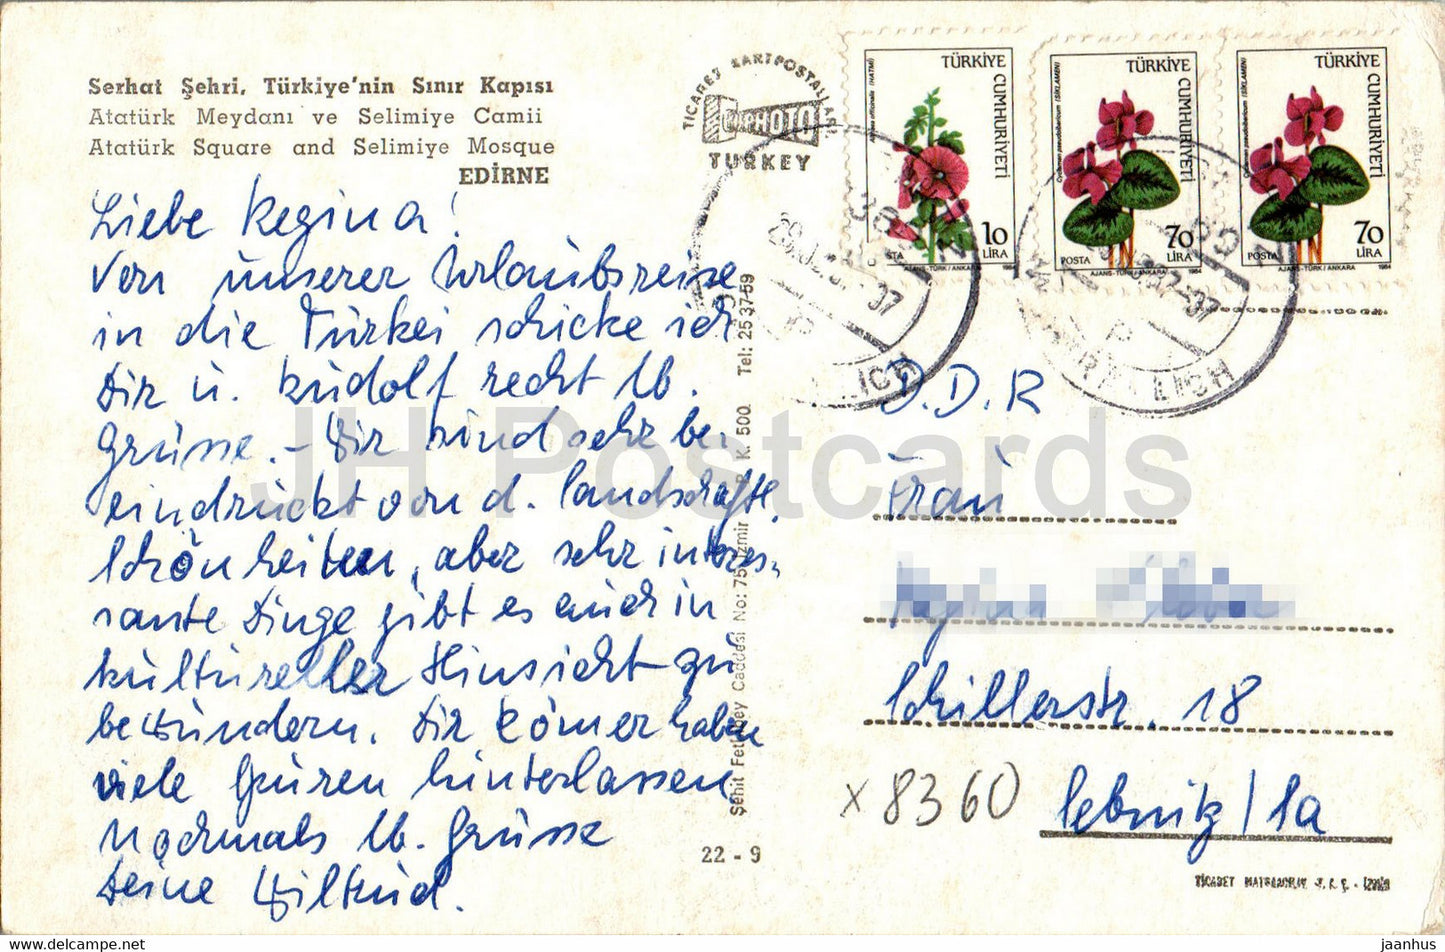 Serhat Şehri, Türkiye'nin Sınır Kapısı
Atatürk Meydanı ve Selimiye Camii
Atatürk Square and Selimiye Mosque
EDİRNE
Liebe Regina!
Von unserer Urlaubsreise
in die Türkei schicke ich
Dir u. Rudolf recht lb.
Grüsse. – Wir sind sehr be-
eindruckt von d. landschaftl.
Schönheiten, aber sehr interes-
sante Dinge gibt es auch in
kultureller Hinsicht zu
bewundern. Die Römer haben
viele Spuren hinterlassen.
Nochmals lb. Grüsse
Deine Wiltrud.
TİCARET KARTPOSTALLARI
TURKEY
Şehit Fethibey Caddesi No: 75 İzmir P. K. 500 Tel: 25 37 59
22 - 9
TÜRKİYE CUMHURİYETİ
10 LİRA
POSTA
AJANS-TÜRK / ANKARA
TÜRKİYE CUMHURİYETİ
70 LİRA
POSTA
AJANS-TÜRK / ANKARA 1984
TÜRKİYE CUMHURİYETİ
70 LİRA
POSTA
AJANS-TÜRK / ANKARA 1984
D.D.R
Frau
Schillerstr. 18
x 8360 Sebnitz / Sa
TİCARET MATBAACILIK T.A.Ş. - İZMİR
JH Postcards
delcampe.net
jaanhus